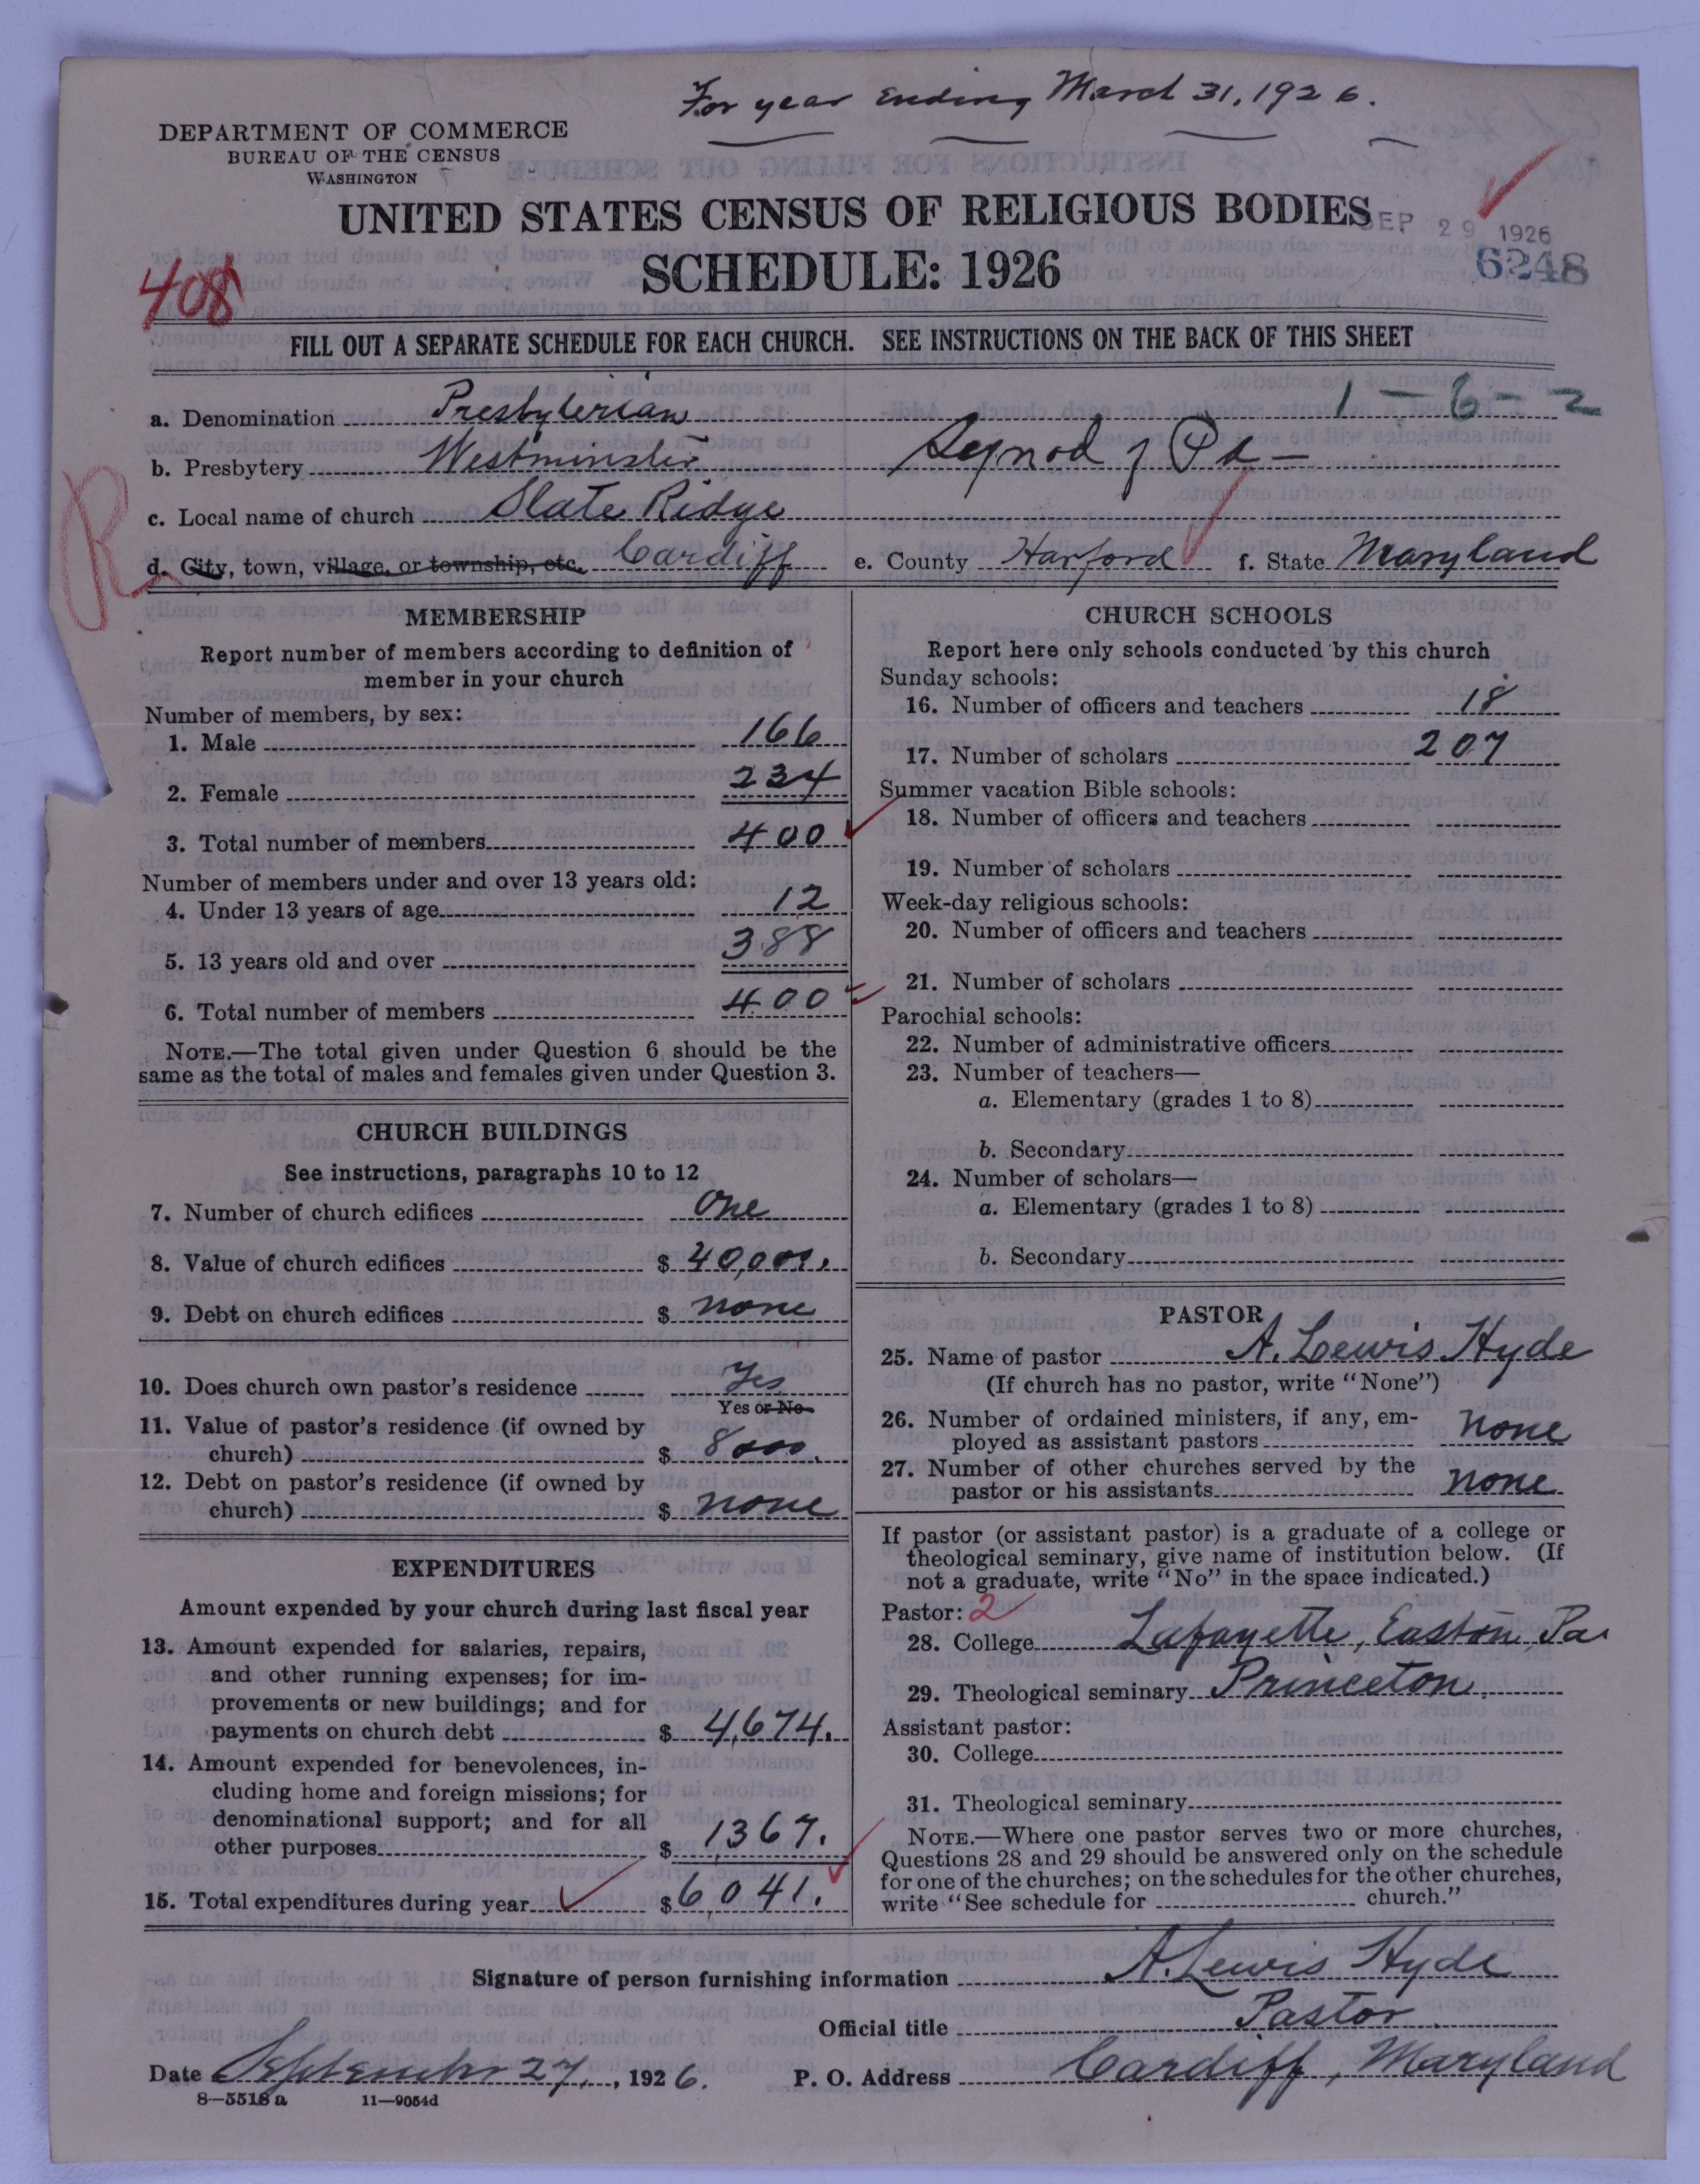 For year Ending March 31, 1926.
DEPARTMENT OF COMMERCE
BUREAU OF THE CENSUS
WASHINGTON
UNITED STATES CENSUS OF RELIGIOUS BODIES
SEP 29 1926
SCHEDULE: 1926
6248
408
FILL OUT A SEPARATE SCHEDULE FOR EACH CHURCH. SEE INSTRUCTIONS ON THE BACK OF THIS SHEET
1-6-2
a. Denomination Presbyterian
b. Presbytery Westminster Synod of Pa-
c. Local name of church Slate Ridge
R
d. City, town, village, or township, etc. Cardiff e. County Harford f. State Maryland
MEMBERSHIP
Report number of members according to definition of
member in your church
Number of members, by sex:
1. Male 166
2. Female 234
3. Total number of members 400
Number of members under and over 13 years old:
4. Under 13 years of age 12
5. 13 years old and over 388
6. Total number of members 400
NOTE.—The total given under Question 6 should be the
same as the total of males and females given under Question 3.
CHURCH BUILDINGS
See instructions, paragraphs 10 to 12
7. Number of church edifices One
8. Value of church edifices $ 40,000.
9. Debt on church edifices $ none
10. Does church own pastor's residence Yes
Yes or No
11. Value of pastor's residence (if owned by
church) $ 8000.
12. Debt on pastor's residence (if owned by
church) $ none
EXPENDITURES
Amount expended by your church during last fiscal year
13. Amount expended for salaries, repairs,
and other running expenses; for im-
provements or new buildings; and for
payments on church debt $ 4,674.
14. Amount expended for benevolences, in-
cluding home and foreign missions; for
denominational support; and for all
other purposes $ 1367.
15. Total expenditures during year $ 6,041.
CHURCH SCHOOLS
Report here only schools conducted by this church
Sunday schools:
16. Number of officers and teachers 18
17. Number of scholars 207
Summer vacation Bible schools:
18. Number of officers and teachers
19. Number of scholars
Week-day religious schools:
20. Number of officers and teachers
21. Number of scholars
Parochial schools:
22. Number of administrative officers
23. Number of teachers—
a. Elementary (grades 1 to 8)
b. Secondary
24. Number of scholars—
a. Elementary (grades 1 to 8)
b. Secondary
PASTOR
25. Name of pastor A. Lewis Hyde
(If church has no pastor, write "None")
26. Number of ordained ministers, if any, em-
ployed as assistant pastors none
27. Number of other churches served by the
pastor or his assistants none
If pastor (or assistant pastor) is a graduate of a college or
theological seminary, give name of institution below. (If
not a graduate, write "No" in the space indicated.)
Pastor: 2
28. College Lafayette, Easton, Pa.
29. Theological seminary Princeton.
Assistant pastor:
30. College
31. Theological seminary
NOTE.—Where one pastor serves two or more churches,
Questions 28 and 29 should be answered only on the schedule
for one of the churches; on the schedules for the other churches,
write "See schedule for church."
Signature of person furnishing information A. Lewis Hyde
Official title Pastor
Date September 27, 1926. P. O. Address Cardiff, Maryland
8—5518 a 11—9054d